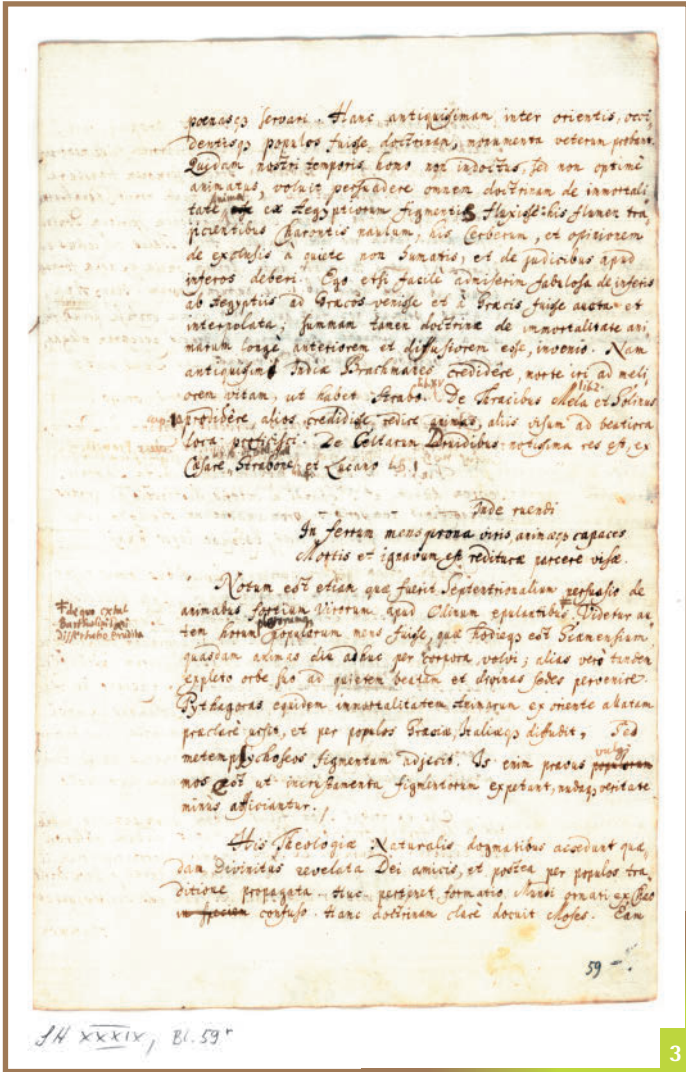 poenasq́ servari. Hanc antiquissimam inter orientis, occi-
dentisq́ populos fuisse doctrinam, monumenta veterum probant.
Quidam nostri temporis homo non indoctus, sed non optimè
animatus, voluit persuadere omnem doctrinam de immortali
tate animae ex Aegyptiorum figmentis fluxisse: his flumen tra-
jicientibus Charontis naulum, his Cerberum, et opinionem
de exclusis à quiete non humatis, et de judicibus apud
inferos deberi. Ego etsi facilè admiserim fabulosa de inferis
ab Aegyptiis ad Graecos venisse et à Graecis fuisse aucta et
interpolata; summam tamen doctrinae de immortalitate ani
marum longè anteriorem et diffusiorem esse, invenio. Nam
antiquissimi Indiae Brachmanes credidere, morte iri ad meli
orem vitam, ut habet Strabo lib. XV. De Thracibus Mela lib. 2. et Solinus
prodidêre, alios credidisse, redire animas, aliis visum ad beatiora
loca proficisci. De Celtarum Druidibus notissima res est, ex
Caesare, Strabone, et Lucano lib. 1
Inde ruendi
In ferrum mens prona viris, animaeq́ capaces
Mortis et ignavum est rediturae parcere vitae.
Notum est etiam quae fuerit Septentrionalium persuasio de
animabus fortium Virorum apud Othinum epulantibus. Videtur au
de quo extat
Bartholini
dissertatio erudita
tem horum populorum plerorumq́ mens fuisse, quae hodieq́ est Siamensium
quasdam animas diu adhuc per corpora volvi; alias verò tandem
expleto orbe suo ad quietem beatam et divinas sedes pervenire.
Pythagoras equidem immortalitatem animarum ex oriente allatam
praeclarè ursit, et per populos Graeciae, Italiaeq́ diffudit, sed
metempsychoseos figmentum adjecit. Is enim pravus populorum vulgi
mos est ut incrustamenta figmentorum expetant, nudaq́ veritate
minus afficiantur.
His Theologiae Naturalis dogmatibus accedunt quae
dam Divinitùs revelata Dei amicis, et postea per populos tra
ditione propagata. Huc pertinet formatio Mundi ornati ex Chao
in speciem confuso. Hanc doctrinam clarè docuit Moses. Eam
59
LH XXXIX, Bl. 59r
3